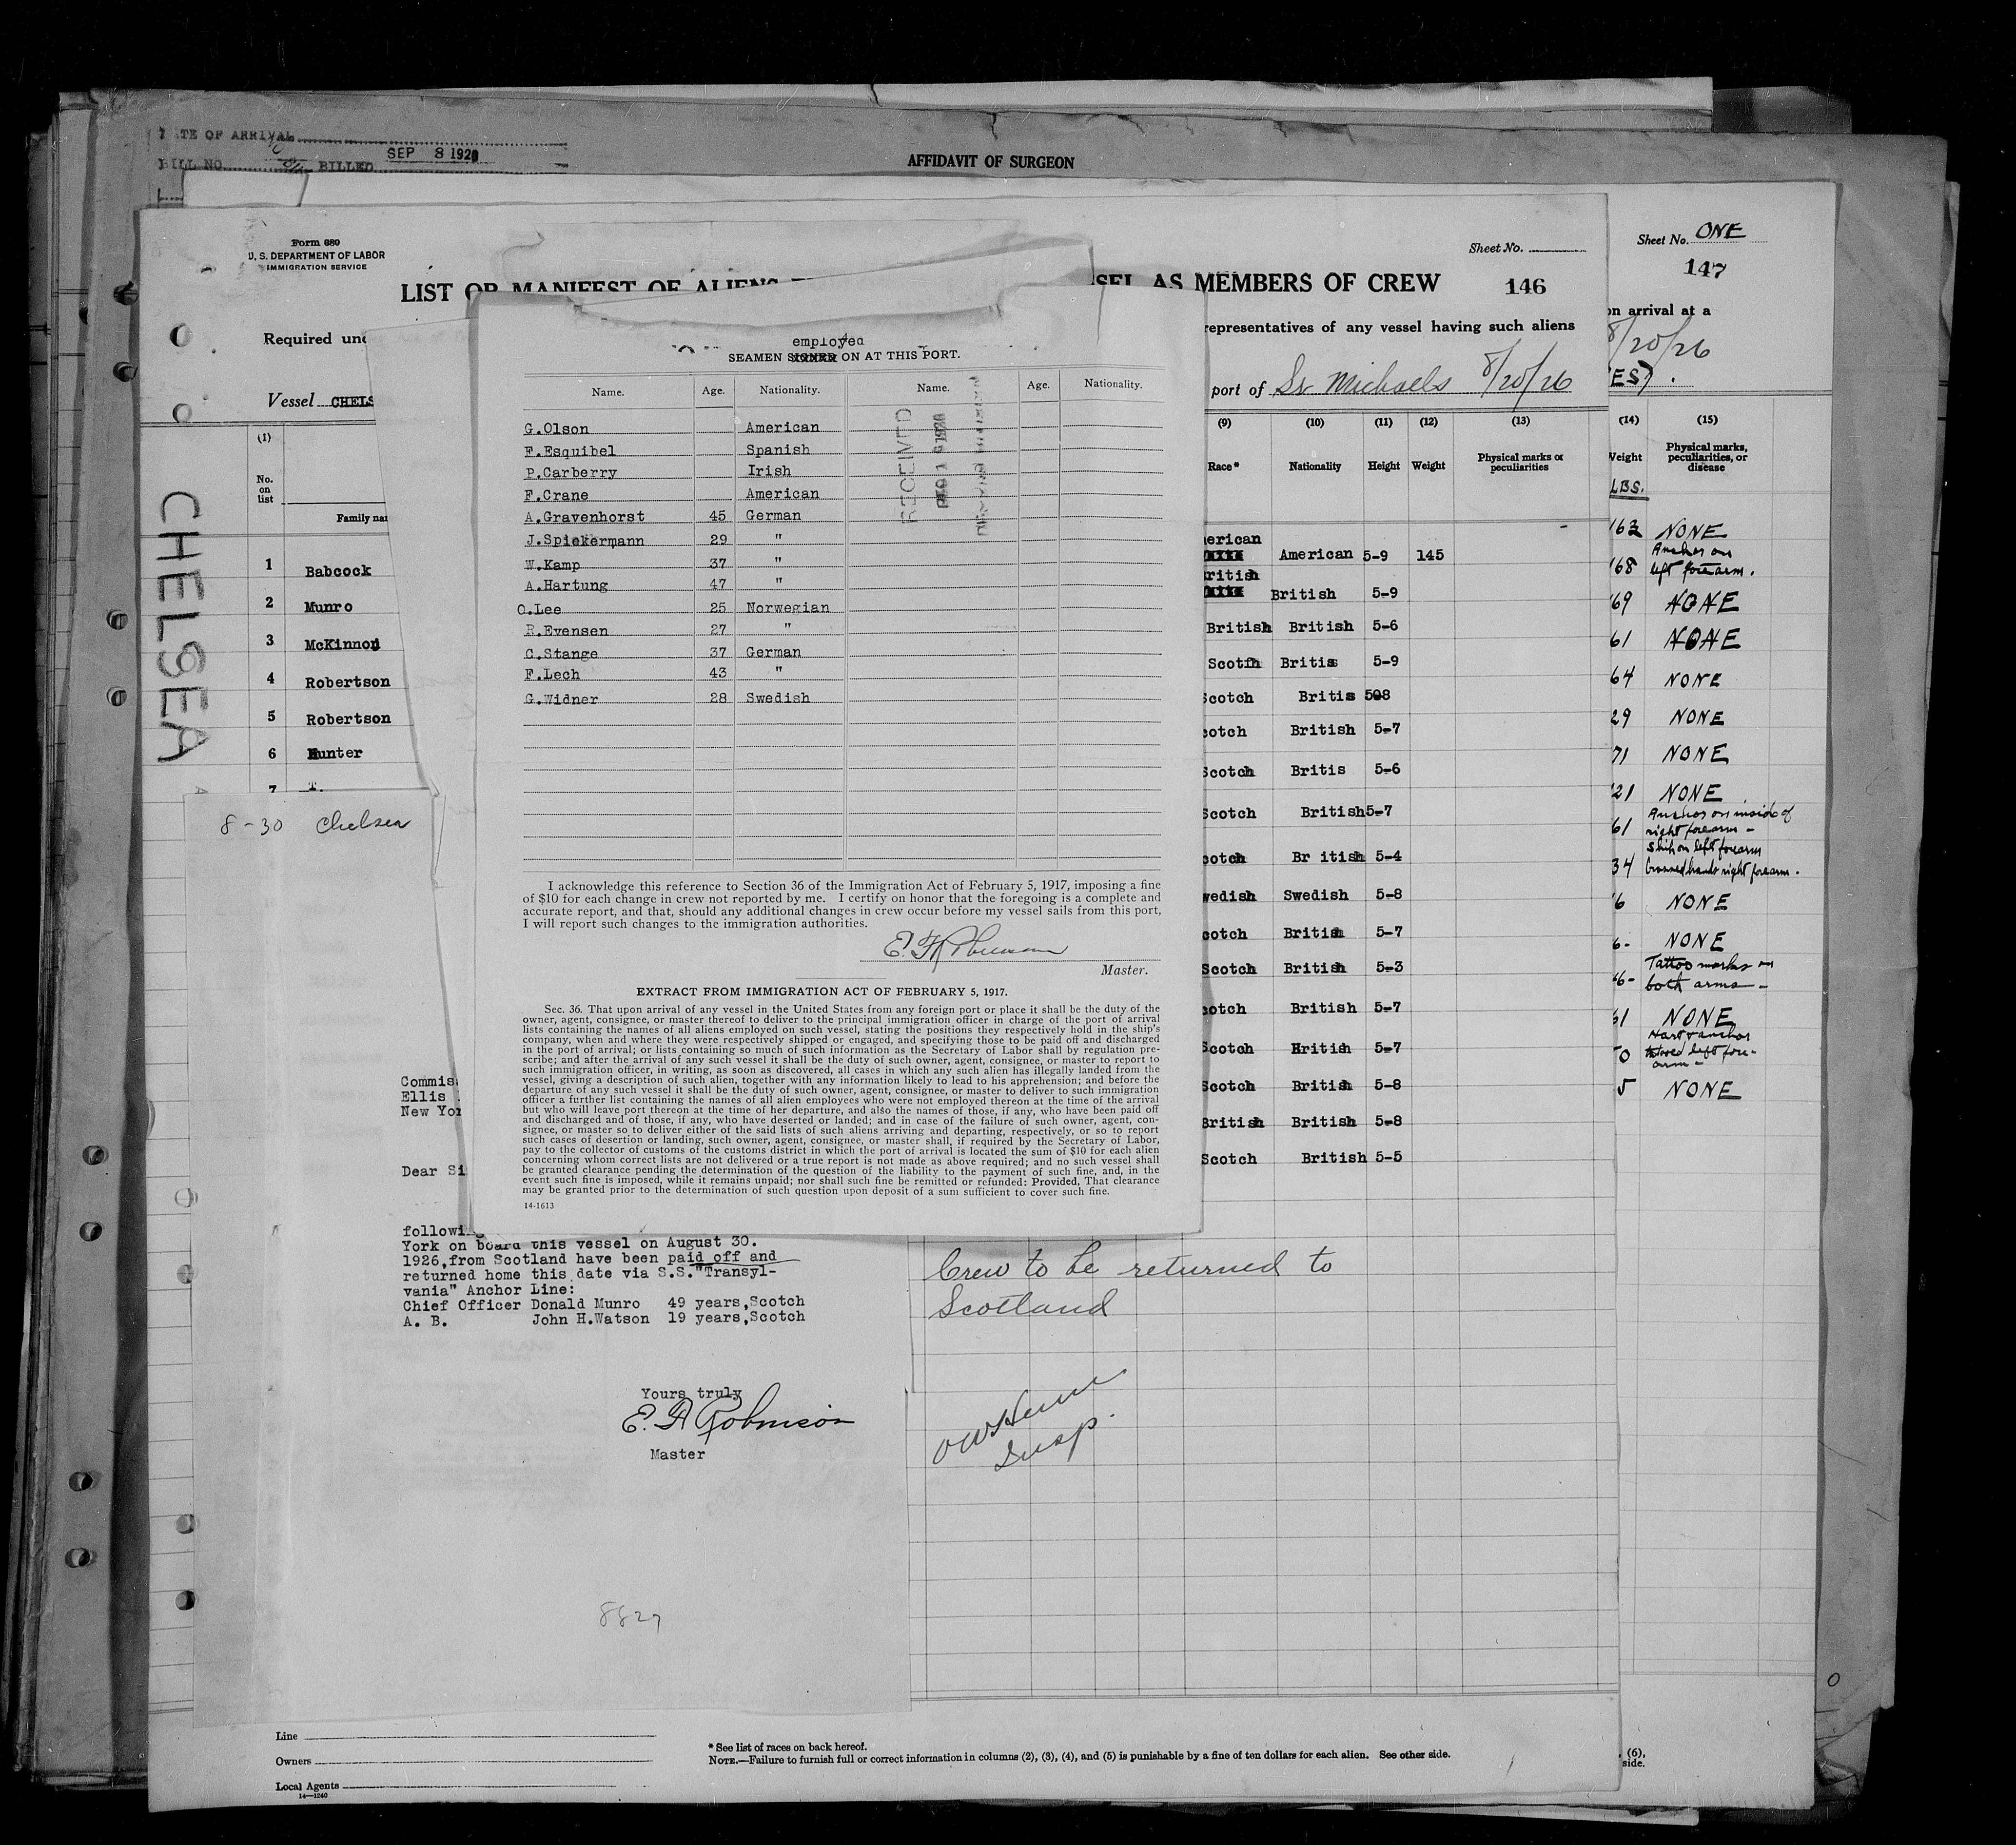 TE OF ARRIVAL
BILL NO. BILLED SEP 8 1926
AFFIDAVIT OF SURGEON
Form 680
U. S. DEPARTMENT OF LABOR
IMMIGRATION SERVICE
Sheet No.
146
LIST OR MANIFEST OF ALIENS
SEL AS MEMBERS OF CREW
Required und
representatives of any vessel having such aliens
Vessel CHELS
port of St Michaels 8/20/26
CHELSEA
(1)
No. on list
Family nam
1 Babcock
2 Munro
3 McKinnon
4 Robertson
5 Robertson
6 Hunter
7
employed
SEAMEN SIGNED ON AT THIS PORT.
Name. Age. Nationality. Name. Age. Nationality.
RECEIVED
G.Olson American
F.Esquibel Spanish
P.Carberry Irish
F.Crane American
A.Gravenhorst 45 German
J.Spiekermann 29 "
W.Kamp 37 "
A.Hartung 47 "
O.Lee 25 Norwegian
R.Evensen 27 "
C.Stange 37 German
F.Lech 43 "
G.Widner 28 Swedish
I acknowledge this reference to Section 36 of the Immigration Act of February 5, 1917, imposing a fine
of $10 for each change in crew not reported by me. I certify on honor that the foregoing is a complete and
accurate report, and that, should any additional changes in crew occur before my vessel sails from this port,
I will report such changes to the immigration authorities.
Master.
EXTRACT FROM IMMIGRATION ACT OF FEBRUARY 5, 1917.
Sec. 36. That upon arrival of any vessel in the United States from any foreign port or place it shall be the duty of the
owner, agent, consignee, or master thereof to deliver to the principal immigration officer in charge of the port of arrival
lists containing the names of all aliens employed on such vessel, stating the positions they respectively hold in the ship's
company, when and where they were respectively shipped or engaged, and specifying those to be paid off and discharged
in the port of arrival; or lists containing so much of such information as the Secretary of Labor shall by regulation pre-
scribe; and after the arrival of any such vessel it shall be the duty of such owner, agent, consignee, or master to report to
such immigration officer, in writing, as soon as discovered, all cases in which any such alien has illegally landed from the
vessel, giving a description of such alien, together with any information likely to lead to his apprehension; and before the
departure of any such vessel it shall be the duty of such owner, agent, consignee, or master to deliver to such immigration
officer a further list containing the names of all alien employees who were not employed thereon at the time of the arrival
but who will leave port thereon at the time of her departure, and also the names of those, if any, who have been paid off
and discharged and of those, if any, who have deserted or landed; and in case of the failure of such owner, agent, con-
signee, or master so to deliver either of the said lists of such aliens arriving and departing, respectively, or so to report
such cases of desertion or landing, such owner, agent, consignee, or master shall, if required by the Secretary of Labor,
pay to the collector of customs of the customs district in which the port of arrival is located the sum of $10 for each alien
concerning whom correct lists are not delivered or a true report is not made as above required; and no such vessel shall
be granted clearance pending the determination of the question of the liability to the payment of such fine, and, in the
event such fine is imposed, while it remains unpaid; nor shall such fine be remitted or refunded: Provided, That clearance
may be granted prior to the determination of such question upon deposit of a sum sufficient to cover such fine.
14-1613
(9) (10) (11) (12) (13)
Race* Nationality Height Weight Physical marks or peculiarities
erican American 5-9 145
ritish British 5-9
British British 5-6
Scotch Britis 5-9
Scotch Britis 508
cotch British 5-7
Scotch Britis 5-6
Scotch British 5-7
cotch Br itish 5-4
wedish Swedish 5-8
cotch British 5-7
Scotch British 5-3
cotch British 5-7
Scotch British 5-7
Scotch British 5-8
British British 5-8
Scotch British 5-5
Sheet No. ONE
147
on arrival at a
8/20/26
ES) .
(14) (15)
Weight Physical marks, peculiarities, or disease
LBS.
163 NONE
168 Anchor on left forearm.
169 NONE
61 NONE
64 NONE
29 NONE
71 NONE
121 NONE
61 Anchor on inside of right forearm -
34 Ship on left forearm Crossed hands right forearm.
6 NONE
6- NONE
6- Tattoo marks on both arms -
61 NONE
0 Hart & anchor tatooed left fore-arm -
5 NONE
8-30 Chelsea
Commis
Ellis
New Yor
Dear Si
followi
York on board this vessel on August 30.
1926,from Scotland have been paid off and
returned home this date via S.S."Transyl-
vania" Anchor Line:
Chief Officer Donald Munro 49 years,Scotch
A. B. John H.Watson 19 years,Scotch
Yours truly
E. A Robinson
Master
8827
Crew to be returned to
Scotland
Insp.
Line
Owners
Local Agents
14-1240
* See list of races on back hereof.
NOTE.—Failure to furnish full or correct information in columns (2), (3), (4), and (5) is punishable by a fine of ten dollars for each alien. See other side.
, (6),
side.